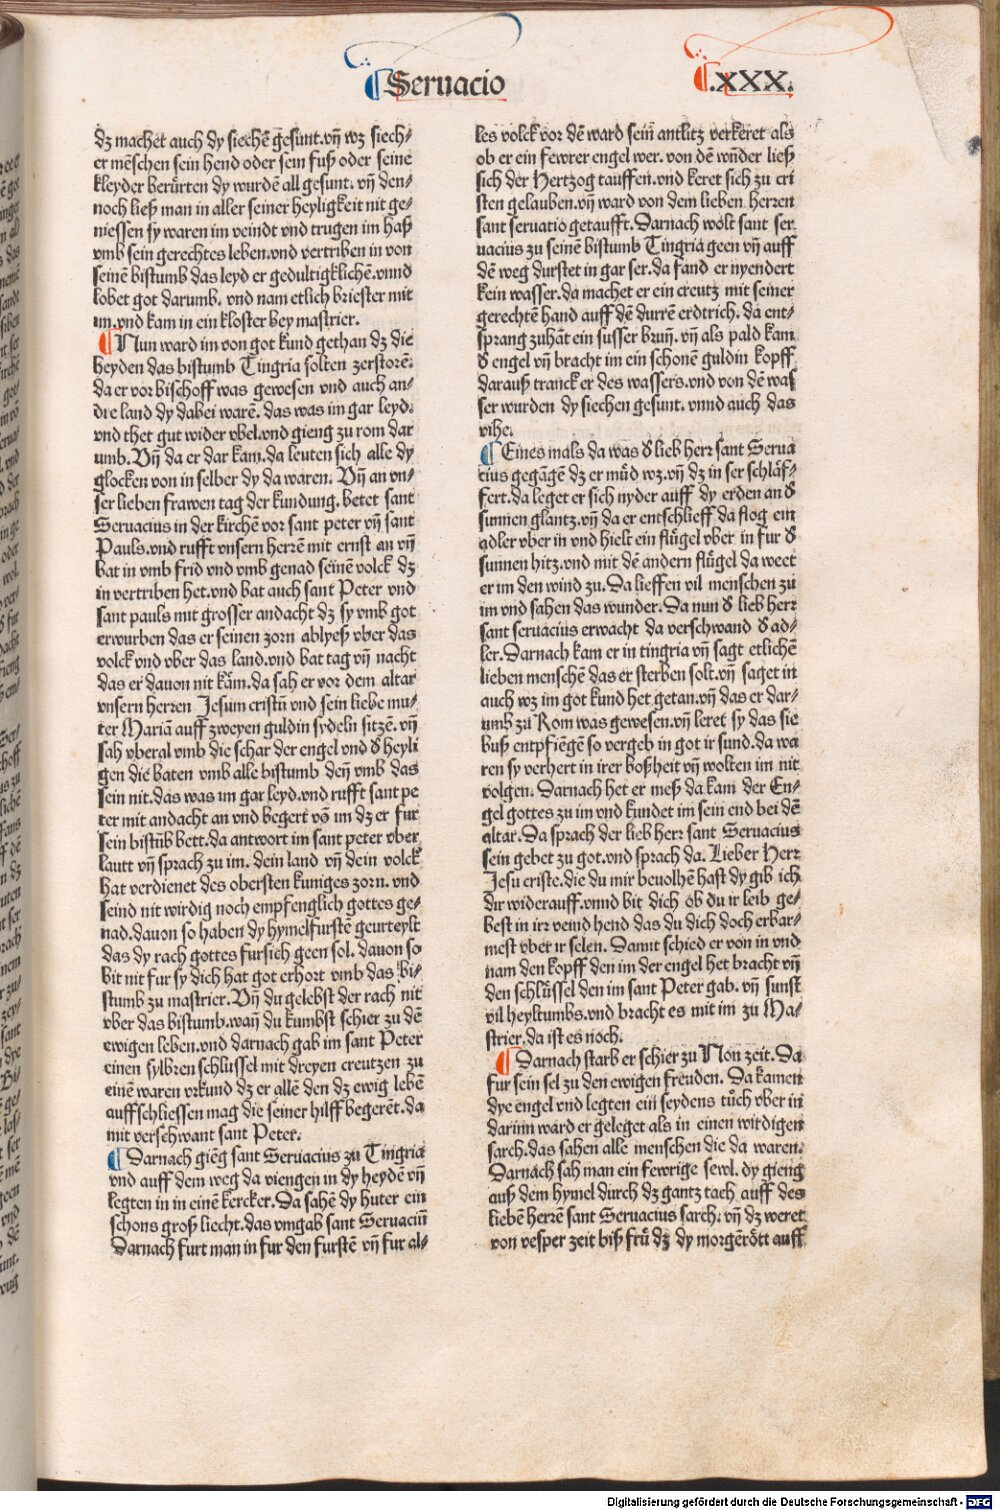 Seruacio
.xxx.
dz machet auch dy siechē gesunt. vn̄ wz siech-
er mēschen sein hend oder sein fuß oder seine
kleyder berürten dy wurdē all gesunt. vn̄ den-
noch ließ man in aller seiner heyligkeit nit ge-
niessen sy waren im veindt vnd trugen im haß
vmb sein gerechtes leben. vnd vertriben in von
seinē bistumb das leyd er gedultigklichē. vnnd
lobet got darumb. vnd nam etlich briester mit
im. vnd kam in ein kloster bey mastrier.
Nun ward im von got kund gethan dz die
heyden das bistumb Tingria solten zerstorē.
da er vor bischoff was gewesen vnd auch an-
die land dy dabei warē. das was im gar leyd.
vnd thet gut wider vbel. vnd gieng zu rom dar
umb. Vn̄ da er dar kam. da leuten sich alle dy
glocken von in selber dy da waren. Vn̄ an vn-
ser lieben frawen tag der kundung. betet sant
Seruacius in der kirchē vor sant peter vn̄ sant
Pauls. vnd rufft vnsern herrē mit ernst an vn̄
bat in vmb frid vnd vmb genad seinē volck dz
in vertriben het. vnd bat auch sant Peter vnd
sant pauls mit grosser andacht dz sy vmb got
erwurben das er seinen zorn ablyeß vber das
volck vnd vber das land. vnd bat tag vn̄ nacht
das er dauon nit käm. da sah er vor dem altar
vnsern herren Jesum cristū vnd sein liebe mu-
ter Mariā auff zweyen guldin sydeln sitzē. vn̄
sah vberal vmb die schar der engel vnd d̕ heyli
gen die baten vmb alle bistumb den̄ vmb das
sein nit. das was im gar leyd. vnd rufft sant pe
ter mit andacht an vnd begert vō im dz er fur
sein bistūb bett. da antwort im sant peter vber
lautt vn̄ sprach zu im. dein land vn̄ dein volck
hat verdienet des obersten kuniges zorn. vnd
seind nit wirdig noch empfenglich gottes ge-
nad. dauon so haben dy hymelfurstē geurteylt
das dy rach gottes fursich geen sol. dauon so
bit nit fur sy dich hat got erhort vmb das bi-
stumb zu mastrier. Vn̄ du gelebst der rach nit
vber das bistumb. wan̄ du kumbst schier zu dē
ewigen leben. vnd darnach gab im sant Peter
einen sylbren schlussel mit dreyen creutzen zu
einē waren vrkund dz er allē den dz ewig lebē
auffschliessen mag die seiner hilff begerēt. da
mit verschwant sant Peter.
Darnach giēg sant Seruacius zu Tingria
vnd auff dem weg da viengen in dy heydē vn̄
legten in in einē kercker. Da sahē dy huter ein
schons groß liecht. das vmgab sant Seruaciū
Darnach furt man in fur den furstē vn̄ fur al-
les volck vor dē ward sein antlitz verkeret als
ob er ein fewrer engel wer. von dē wūder ließ
sich der Hertzog tauffen. vnd keret sich zu cri
sten gelauben. vn̄ ward von dem lieben herren
sant seruatio getaufft. Darnach wolt sant ser
uacius zu seinē bistumb Tingria geen vn̄ auff
dē weg durstet in gar ser. da fand er nyendert
kein wasser. da machet er ein creutz mit seiner
gerechtē hand auff dē durrē erdtrich. da ent-
sprang zuhāt ein susser brun̄. vn̄ als pald kam
d̕ engel vn̄ bracht im ein schonē guldin kopff
darauß tranck er des wassers. vnd von dē was
ser wurden dy siechen gesunt. vnnd auch das
vihe.
Eines mals da was d̕ lieb herr sant Serua
cius gegāgē dz er müd wz. vn̄ dz in ser schläf-
fert. da leget er sich nyder auff dy erden an d̕
sunnen glantz. vn̄ da er entschlieff da flog ein
adler vber in vnd hielt ein flügel vber in fur d̕
sunnen hitz. vnd mit dē andern flügel da weet
er im den wind zu. Da lieffen vil menschen zu
im vnd sahen das wunder. Da nun d̕ lieb herr
sant seruacius erwacht da verschwand d̕ ad-
ler. Darnach kam er in tingria vn̄ sagt etlichē
lieben menschē das er sterben solt. vn̄ saget in
auch wz im got kund het getan. vn̄ das er dar-
umb zu Rom was gewesen. vn̄ leret sy das sie
buß entpfiēgē so vergeb in got ir sund. da wa
ren sy verhert in irer boßheit vn̄ wolten im nit
volgen. Darnach het er meß da kam der En-
gel gottes zu im vnd kundet im sein end bei dē
altar. Da sprach der lieb herr sant Seruacius
sein gebet zu got. vnd sprach da. Lieber Herr
Jesu criste. die du mir beuolhē hast dy gib ich
dir widerauff. vnnd bit dich ob du ir leib ge-
best in irr veind hend das du dich doch erbar-
mest vber ir selen. Damit schied er von in vnd
nam den kopff den im der engel het bracht vn̄
den schlüssel den im sant Peter gab. vn̄ sunst
vil heyltumbs. vnd bracht es mit im zu Ma-
strier. da ist es noch.
Darnach starb er schier zu Non zeit. Da
fur sein sel zu den ewigen freuden. Da kamen
dye engel vnd legten ein seydens tuch vber in
darinn ward er geleget als in einen wirdigen
sarch. das sahen alle menschen die da waren.
Darnach sah man ein fewrige sewl. dy gieng
auß dem hymel durch dz gantz tach auff des
liebē herrē sant Seruacius sarch. vn̄ dz weret
von vesper zeit biß frü dz dy morgērött auff
Digitalisierung gefördert durch die Deutsche Forschungsgemeinschaft - DFG